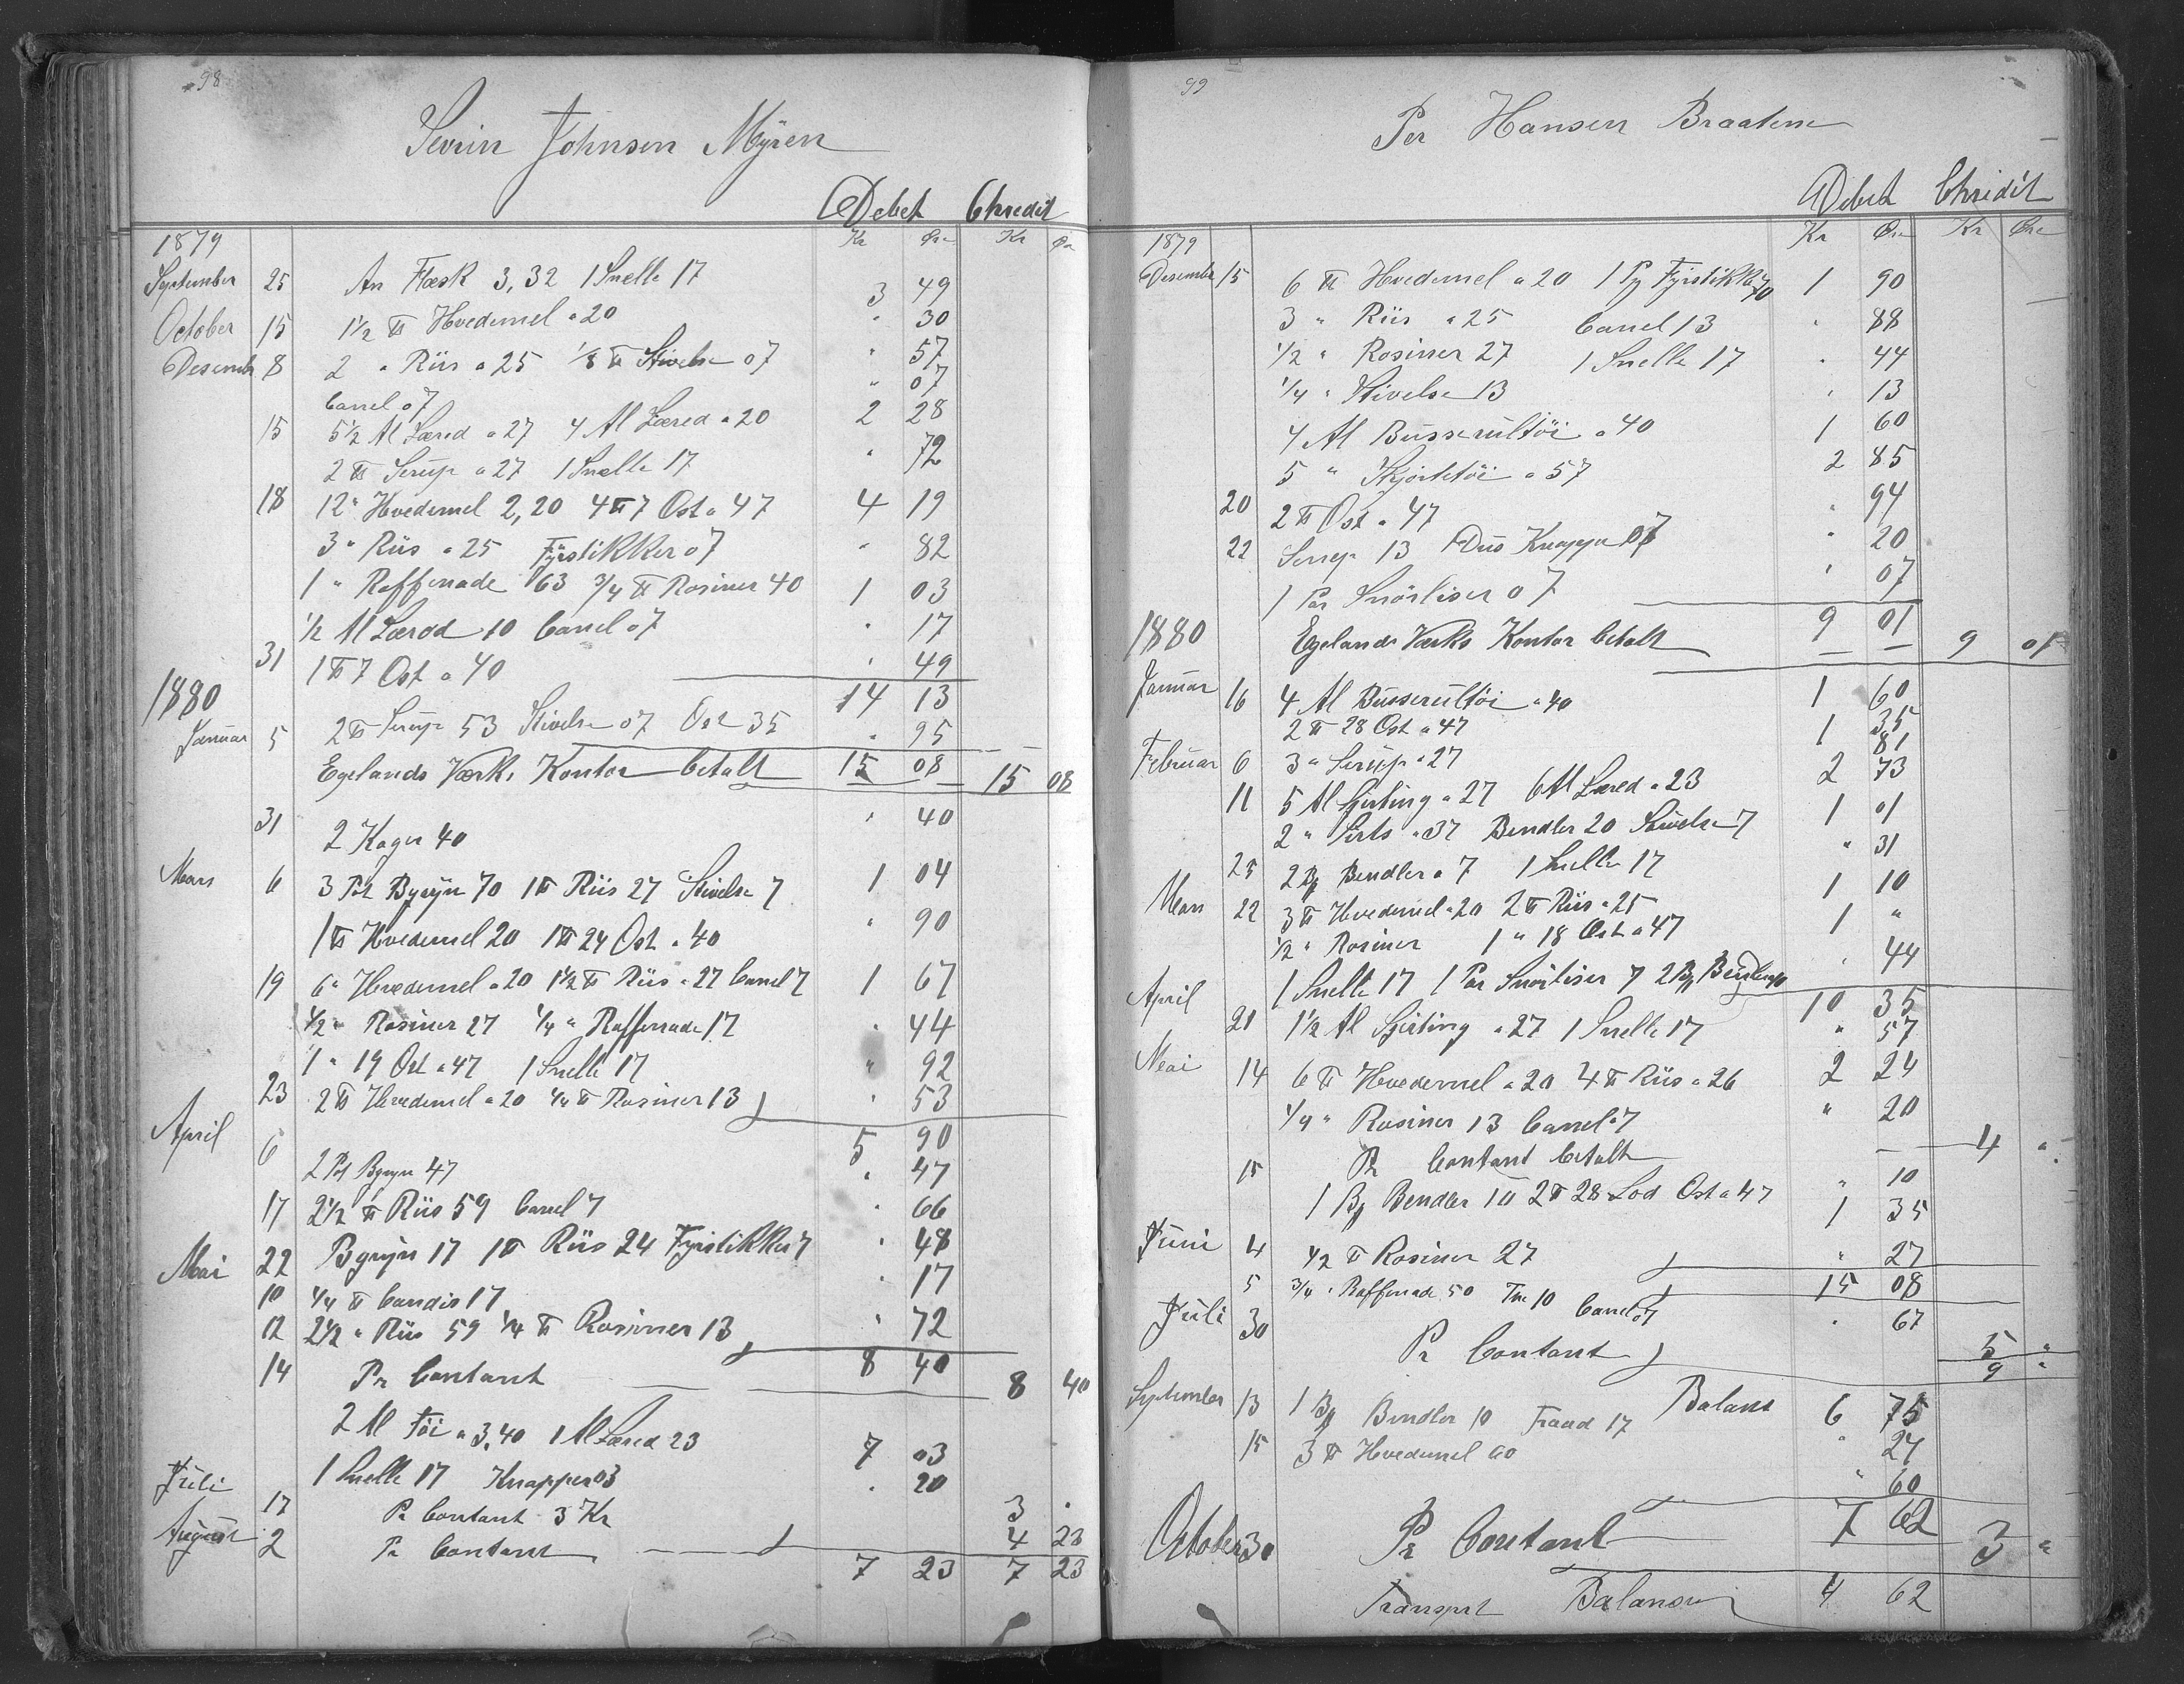 98
Sevrin Johnsen Myren
Debet Chredit
Kr Øre Kr Øre
1879
September 25 An Flæsk 3,32 1 Snelle 17 3 49
October 15 1 1/2 ℔ Hvedemel a 20 " 30
Desembr 8 2 " Riis a 25 1/8 ℔ Stivelse 07 " 57
Canel 07 " 07
15 5 1/2 Al Læred a 27 4 Al Læred a 20 2 28
2 ℔ Serup a 27 1 Snelle 17 " 72
18 12 " Hvedemel 2,20 4 ℔ 7 Ost a 47 4 19
3 " Riis a 25 Fyrstikker 07 " 82
1 " Raffenade 63 3/4 ℔ Rosiner 40 1 03
1/2 Al Lærød 10 Canel 07 " 17
31 1 ℔ 7 Ost a 40 " 49
1880 14 13
Januar 5 2 ℔ Serup 53 Stivelse 07 Ost 35 " 95
Egelands Værks Kontor betalt 15 08 15 08
31 2 Kager 40 " 40
Mars 6 3 Pot Bygryn 70 1 ℔ Riis 27 Stivelse 7 1 04
1 ℔ Hvedemel 20 1 ℔ 24 Ost a 40 " 90
19 6 " Hvedemel a 20 1 1/2 ℔ Riis a 27 Canel 7 1 67
1/2 " Rosiner 27 1/4 " Raffenade 17 " 44
1 " 19 Ost a 47 1 Snelle 17 " 92
23 2 ℔ Hvedemel a 20 1/4 ℔ Rosiner 13 " 53
April 5 90
6 2 Pot Bgryn 47 " 47
17 2 1/2 ℔ Riis 59 Canel 7 " 66
22 Bgryn 17 1 ℔ Riis 24 Fyrstikker 7 " 48
Mai 10 1/4 ℔ Candis 17 " 17
12 2 1/2 " Riis 59 1/4 ℔ Rosiner 13 " 72
8 40
14 Pr Contant 8 40
2 Al Töi a 3,40 1 Al Læred 23 7 03
1 Snelle 17 Knapper 03 " 20
Juli 17 Pr Contant 3 Kr 3 "
August 2 Pr Contant 4 23
7 23 7 23
99
Per Hansen Braatene
Debet Chridit
Kr Øre Kr Øre
1879
Desember 15 6 ℔ Hvedemel a 20 1 Pg Fyrstikker 70 1 90
3 " Riis a 25 Canel 13 " 88
1/2 " Rosiner 27 1 Snelle 17 " 44
1/4 " Stivelse 13 " 13
4 Al Busserultöi a 40 1 60
5 " Skjortetöi a 57 2 85
20 2 ℔ Ost a 47 " 94
22 Serup 13 Dus Knapper 07 " 20
1 Par Snörliser 07 " 07
1880 9 01
Egelands Værks Kontor betalt 9 01
Januar 16 4 Al Busserultöi a 40 1 60
2 ℔ 28 Ost a 47 1 35
Februar 6 3 " Serup a 27 81
11 5 Al Sjirting a 27 6 Al Læred a 23 2 73
2 " Sirts a 37 Bendler 20 Stivelse 7 1 01
25 2 Bg Bendler a 7 1 Snelle 17 " 31
Mars 22 3 ℔ Hvedemel a 20 2 ℔ Riis a 25 1 10
1/2 " Rosiner 1 " 18 Ost a 47 1 "
1 Snelle 17 1 Par Snörliser 7 2 Bg Bendler 10 " 44
April 10 35
21 1 1/2 Al Sjirting a 27 1 Snelle 17 " 57
Mai 14 6 ℔ Hvedemel a 20 4 ℔ Riis a 26 2 24
1/4 " Rosiner 13 Canel 7 " 20
15 Pr Contant betalt 4 "
1 Bg Bendler 10 2 ℔ 28 Lod Ost a 47 " 10
1 35
Juni 4 1/2 ℔ Rosiner 27 " 27
15 08
5 3/4 " Raffenade 50 10 Canel 07 " 67
Juli 30 Pr Contant 5 "
9 "
Balans 6 75
September 13 1 Bg Bendler 10 Traad 17 " 27
15 3 ℔ Hvedemel 60 " 60
7 62
October 30 Pr Contant 3 "
Transport Balansen 4 62